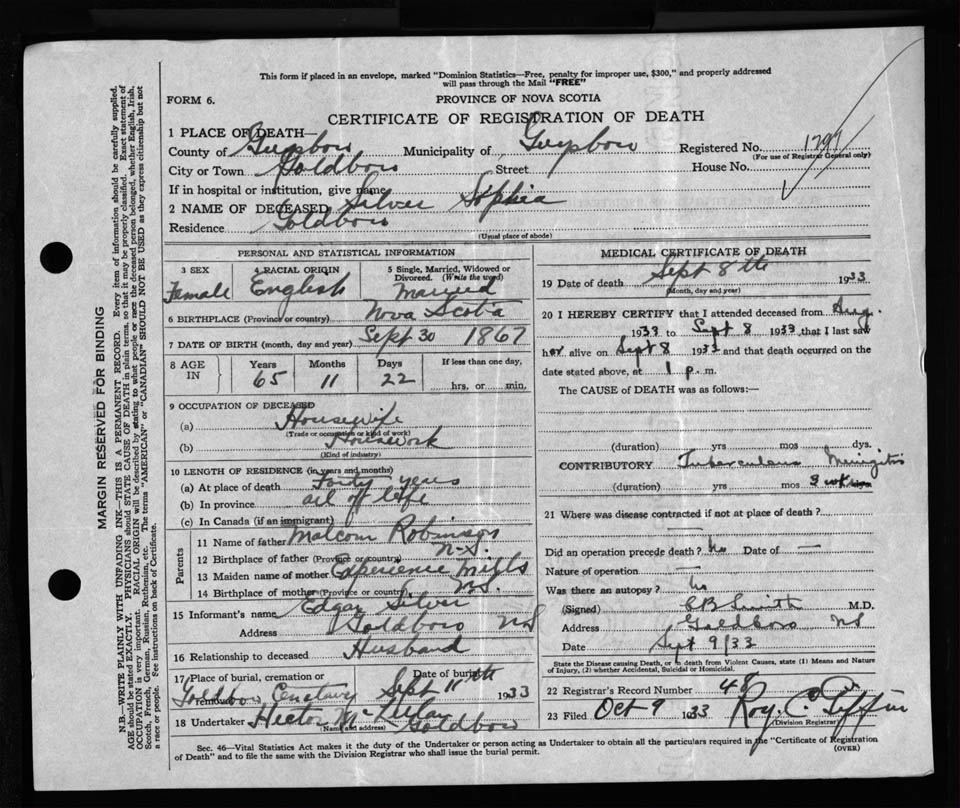 This form if placed in an envelope, marked "Dominion Statistics—Free, penalty for improper use, $300," and properly addressed
will pass through the Mail "FREE"
FORM 6.
PROVINCE OF NOVA SCOTIA
CERTIFICATE OF REGISTRATION OF DEATH
1 PLACE OF DEATH—
County of Guysboro Municipality of Guysboro Registered No. 1797
(For use of Registrar General only)
City or Town Goldboro Street House No.
If in hospital or institution, give name
2 NAME OF DECEASED Silver Sophia
Residence Goldboro
(Usual place of abode)
PERSONAL AND STATISTICAL INFORMATION
3 SEX 4 RACIAL ORIGIN 5 Single, Married, Widowed or Divorced. (Write the word)
Female English Married
6 BIRTHPLACE (Province or country) Nova Scotia
7 DATE OF BIRTH (month, day and year) Sept 30 1867
8 AGE IN Years Months Days If less than one day,
65 11 22 hrs. or min.
9 OCCUPATION OF DECEASED
(a) Housewife
(Trade or occupation or kind of work)
(b) Housework
(Kind of industry)
10 LENGTH OF RESIDENCE (in years and months)
(a) At place of death Forty years
(b) In province all of life
(c) In Canada (if an immigrant)
Parents
11 Name of father Malcom Robinson
12 Birthplace of father (Province or country) N.S.
13 Maiden name of mother Experience Mills
14 Birthplace of mother (Province or country) N.S.
15 Informant's name Edgar Silver
Address Goldboro NS
16 Relationship to deceased Husband
17 Place of burial, cremation or removal Date of burial
Goldboro Sept 11th 1933
18 Undertaker Hector
(Name and address) Goldboro
MEDICAL CERTIFICATE OF DEATH
19 Date of death Sept 8th 1933
(Month, day and year)
20 I HEREBY CERTIFY that I attended deceased from Aug.
1933 to Sept 8 1933, that I last saw
her alive on Sept 8 1933 and that death occurred on the
date stated above, at 1 p. m.
The CAUSE of DEATH was as follows:—
(duration) yrs mos dys.
CONTRIBUTORY Tuberculous Mningitis
(duration) yrs mos 3 wks
21 Where was disease contracted if not at place of death?
—
Did an operation precede death? No Date of —
Nature of operation —
Was there an autopsy? No
(Signed) CB Smith M.D.
Address Goldboro NS
Date Sept 9/33
State the Disease causing Death, or in death from Violent Causes, state (1) Means and Nature
of Injury, (2) whether Accidental, Suicidal or Homicidal.
22 Registrar's Record Number 48
23 Filed Oct 9 1933 Roy. C. Giffin
Division Registrar
Sec. 46—Vital Statistics Act makes it the duty of the Undertaker or person acting as Undertaker to obtain all the particulars required in the "Certificate of Registration
of Death" and to file the same with the Division Registrar who shall issue the burial permit.
(OVER)
MARGIN RESERVED FOR BINDING
N.B.—WRITE PLAINLY WITH UNFADING INK—THIS IS A PERMANENT RECORD. Every item of information should be carefully supplied.
AGE should be stated EXACTLY. PHYSICIANS should STATE CAUSE OF DEATH in plain terms, so that it may be properly classified. Exact statement of
OCCUPATION is very important. RACIAL ORIGIN will be described by stating to what people or race the deceased person belonged, whether English, Irish,
Scotch, French, German, Russian, Ruthenian, etc. The terms "AMERICAN" or "CANADIAN" SHOULD NOT BE USED as they express citizenship but not
a race or people. See instructions on back of Certificate.